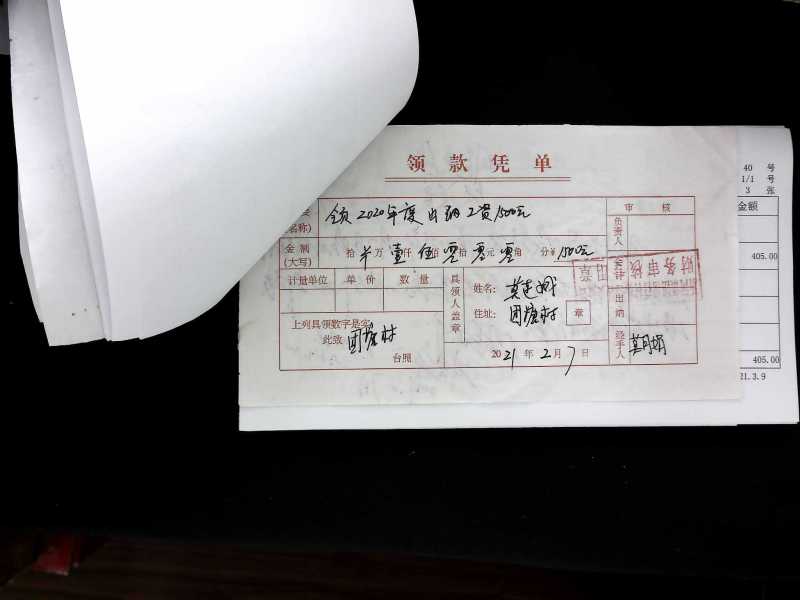 领款凭单
领2020年度出纳工资1500元
名称)
审核
负责人
金制
(大写)
拾 万壹仟伍佰零拾零元零角 分¥1500元
计量单位 单价 数量
具领人盖章
姓名:
住址: 团塘村 章
财务审核
出纳
上列具领数字是实
此致 团塘村
台照
2021年2月7日
经手人
40 号
1/1 号
3 张
金额
405.00
405.00
21.3.9